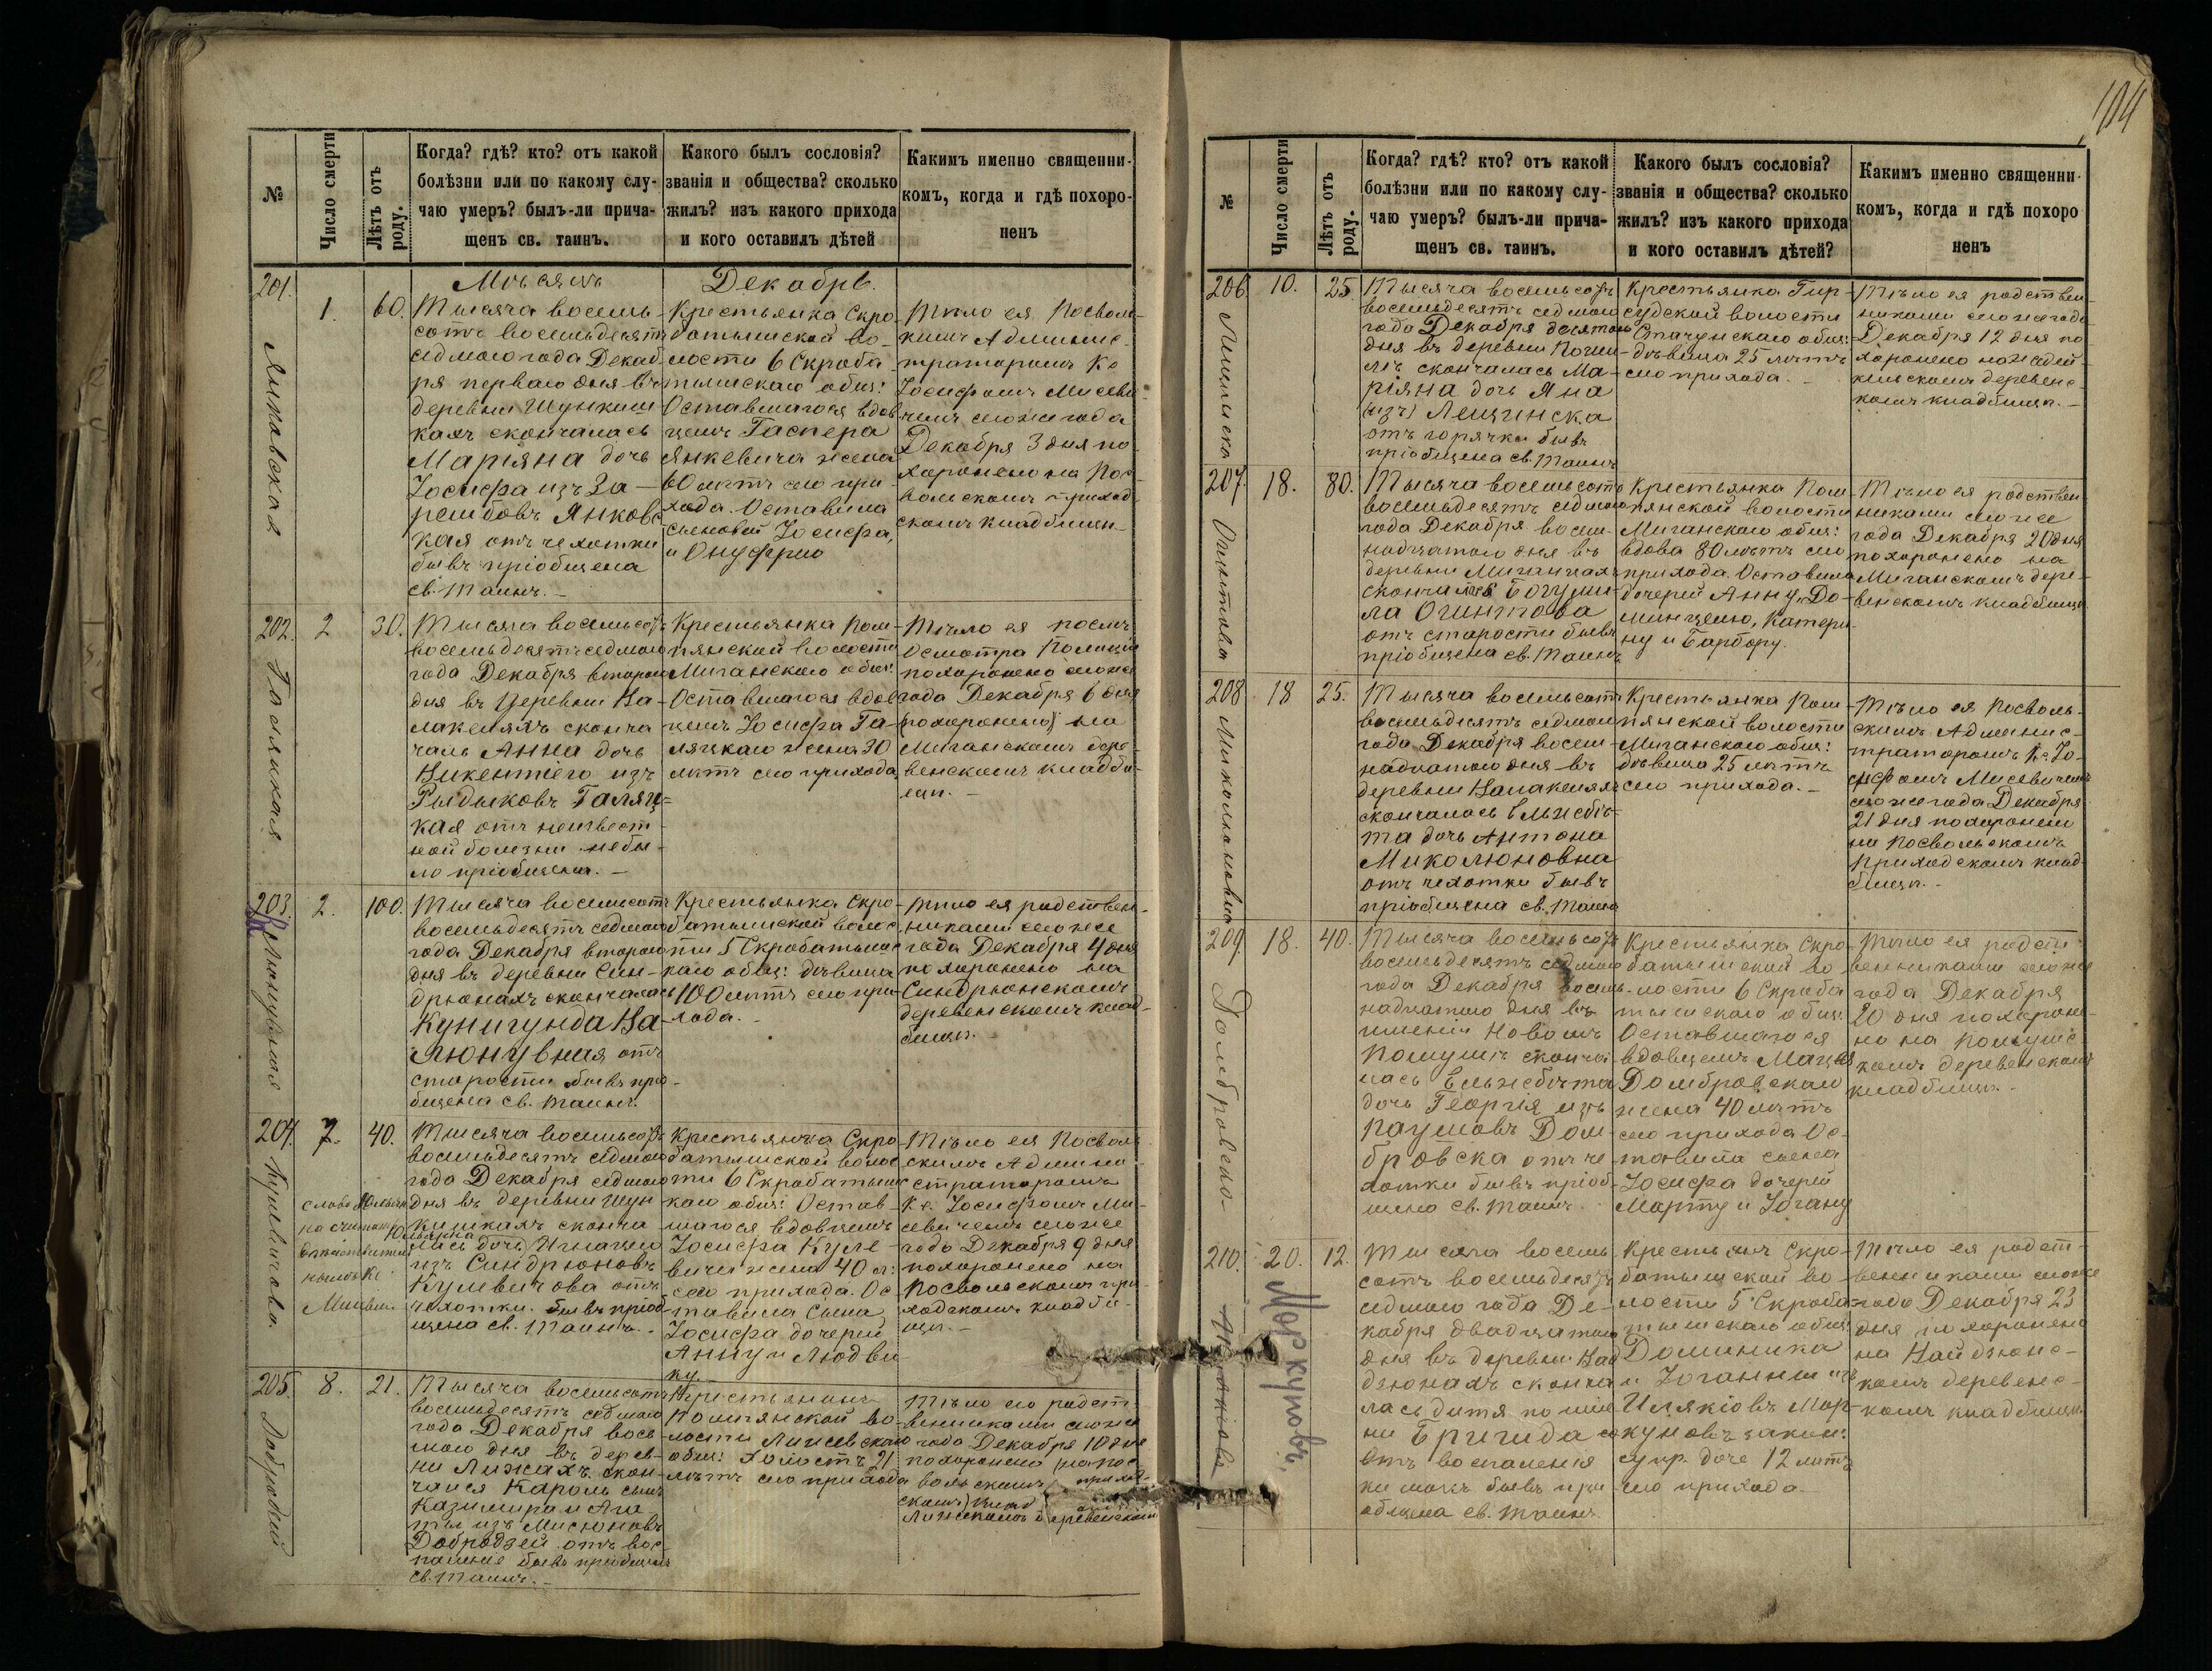 104
№
Число смерти
Лѣтъ отъ роду.
Когда? гдѣ? кто? отъ какой
болѣзни или по какому слу-
чаю умеръ? былъ-ли прича-
щенъ св. таинъ.
Какого былъ сословія?
званія и общества? сколько
жилъ? изъ какого прихода
и кого оставилъ дѣтей
Какимъ именно священни-
комъ, когда и гдѣ похоро-
ненъ
Мѣсяцъ
Декабрь.
201.
Янковская
1.
60.
Тысяча восемь
сотъ восемьдесятъ
седмого года Декаб
ря перваго дня въ
деревни Шункиш
кахъ скончалась
Маріяна дочь
Іосифа изъ За-
рембовъ Янковс
кая отъ чехотки
бывъ пріобщена
св. таинъ.
Крестьянка Скро-
батышской во-
лости 6 Скроба
тышскаго общ:
Оставшагося вдов
цемъ Гаспера
Янкевича жена
60 лѣтъ сего при-
хода. Оставила
сыновей Іосифа,
и Онуфрію
Тѣло ея Посволь-
скимъ Админис-
траторомъ Кс
Іосифомъ Мисеви-
чемъ сего же года
Декабря 3 дня по-
хоронено на Пос-
вольскомъ приход
скомъ кладбищи.
202.
Галяцкая
2
30.
Тысяча восемьсотъ
восемьдесятъ седмого
года Декабря второго
дня въ Деревни На-
лакеляхъ сконча
чаль Анна дочь
Викентіего изъ
Рыдыковъ Галяц-
кая отъ неизвест-
ной болезни не бы-
ло пріобщена.
Крестьянка Пом-
пянской волости
Миганскаго общ:
Оставшагося вдов
цемъ Іосифа Га-
ляцкаго жена 30
лѣтъ сего прихода
Тѣло ея послѣ
осмотра Полиціи
похоронено сего же
года Декабря 6 дня
(похоронено) на
Миганскомъ дере-
венскомъ кладби-
щи.
203.
2.
100.
Тысяча восемьсотъ
восемьдесятъ седмого
года Декабря второго
дня въ деревни Син-
дрюнахъ скончалась
Кунигунда На-
люнувная отъ
старости бывъ прі-
общена св. таинъ.
Крестьянка Скро-
батышской волос-
ти 5 Скробатышс
каго общ: дѣвица
100 лѣтъ сего при-
хода.
Тѣло ея родствен-
никами сего же
года Декабря 4 дня
похоронено на
Синдрюнскомъ
деревенскомъ клад-
бищи.
204.
Кулевичова.
7.
40.
слово Юльяна
Тысяча восемьсотъ
восемьдесятъ седмого
года Декабря седмого
дня въ деревни Шун
кишкахъ сконча
Юльяна
лась дочь Игнація
изъ Синдрюновъ
Кулевичова отъ
чехотки. бывъ пріоб
щена св. таинъ.
Крестьянка Скро
батышской волос
ти 6 Скробатышс
каго общ: Остав-
шагося вдовцемъ
Іосифа Куле-
вича жена 40 л:
сего прихода. Ос-
тавила сына
Іосифа дочерей
Анну и Людви
ку.
Тѣло ея Посволь
скимъ Админи-
страторомъ
Кс. Іосифомъ Ми-
севичемъ сего же
года Декабря 9 дня
похоронено на
Посвольскомъ при-
ходскомъ кладби-
щи.
205.
Добродзей
8.
21.
Тысяча восемьсотъ
восемьдесятъ седмого
года Декабря вось
мого дня въ дерев-
ни Лижахъ скон-
чался Кароль сынъ
Казимира и Ага
ты изъ Мисюновъ
Добродзей отъ вос-
паленіе бывъ пріобщенъ
св. таинъ.
Крестьянинъ
Помпянской во-
лости
общ: холостъ 21
лѣтъ сего прихода
Тѣло его родст
венниками сего же
года Декабря 10 дня
похоронено (на пос
вольскомъ приход-
скомъ)
деревенскомъ
№
Число смерти
Лѣтъ отъ роду.
Когда? гдѣ? кто? отъ какой
болѣзни или по какому слу-
чаю умеръ? былъ-ли прича-
щенъ св. таинъ.
Какого былъ сословія?
званія и общества? сколько
жилъ? изъ какого прихода
и кого оставилъ дѣтей?
Какимъ именно священни-
комъ, когда и гдѣ похоро
ненъ
206.
10.
25.
Тысяча восемьсотъ
восемьдесятъ седмого
года Декабря десятого
дня въ деревни
скончалась Ма-
ріяна дочь Яна
(изъ) Лещинска
отъ горячки бывъ
пріобщена св. таинъ
Крестьянка Гир-
судской волости
Стачунскаго общ:
дѣвица 25 лѣтъ
сего прихода.
Тѣло ея родствен-
никами сего же года
Декабря 12 дня по
хоронено на
деревенс-
комъ кладбищи.
207.
Огинтова
18.
80.
Тысяча восемьсотъ
восемьдесятъ седмого
года Декабря восем-
надцатого дня въ
деревни Миганцахъ
скончалась Богуми-
ла Огинтова
отъ старости бывъ
пріобщена св. таинъ
Крестьянка Пом-
пянской волости
Миганскаго общ:
вдова 80 лѣтъ сего
прихода. Оставила
дочерей Анну, До-
мицелю, Катери-
ну и Барбору.
Тѣло ея родствен-
никами сего же
года Декабря 20 дня
похоронено на
Миганскомъ дере-
венскомъ кладбище
208
Миколюновна
18
25.
Тысяча восемьсотъ
восемьдесятъ седмого
года Декабря восем-
надцатого дня въ
деревни Налакеляхъ
скончалась Ельжбѣ-
та дочь Антона
Миколюновна
отъ чехотки бывъ
пріобщена св. таинъ
Крестьянка Пом-
пянской волости
Миганскаго общ:
дѣвица 25 лѣтъ
сего прихода.
Тѣло ея Посволь-
скимъ Админис-
траторомъ Кс. Іо-
сифомъ Мисевичемъ
сего же года Декабря
21 дня похоронено
на Посвольскомъ
приходскомъ клад-
бищи.
209.
Домбровска
18.
40.
Тысяча восемьсотъ
восемьдесятъ седмого
года Декабря восемь-
надцатого дня въ
имении Новомъ
Помушѣ сконча-
лась Ельжбѣта
дочь Георгія изъ
Паумовъ Дом-
бровска отъ че-
хотки бывъ пріоб-
щено св. таинъ.
Крестьянка Скро
батышской во
лости 6 Скроба
тышскаго общ:
Оставшагося
вдовцемъ Мацея
Домбровскаго
жена 40 лѣтъ
сего прихода Ос-
тавила сына
Іосифа дочерей
Марту и Іогану
Тѣло ея родст-
венниками сего же
года Декабря
20 дня похороне-
но на Помушс-
комъ деревенскомъ
кладбищи.
210.
Моркуновъ.
20.
12.
Тысяча восемь
сотъ восемьдесятъ
седмого года Де-
кабря двадцатого
дня въ деревни Най
дзюнахъ сконча
лась дитя по име
ни Бригида
отъ воспаленія
кишокъ бывъ прі
общена св. таинъ
Крестьянъ Скро-
батышской во-
лости 5 Скроба-
тышскаго общ:
Доминика
и Іоганны изъ
Илякіовъ Мор-
куновъ закон:
супр. дочь 12 лѣтъ
сего прихода.
Тѣло ея родст-
венниками сего же
года Декабря 23
дня похоронено
на Найдзюнс-
комъ деревенс-
комъ кладбищи